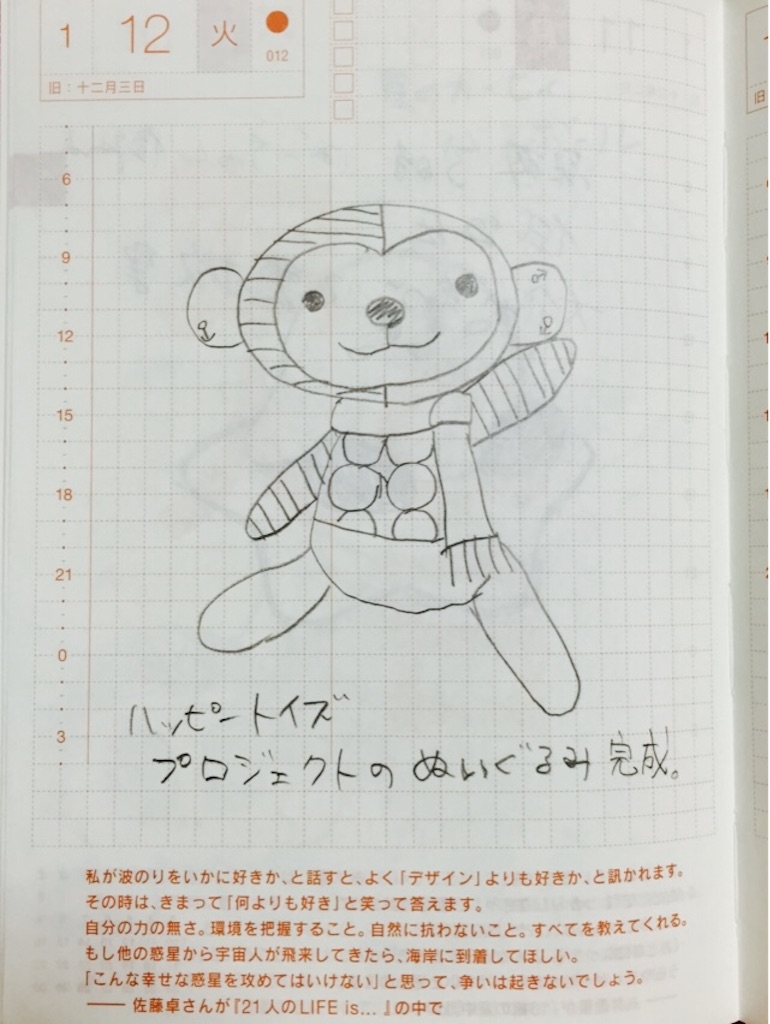 1 12 火
012
旧：十二月三日
6
9
12
15
18
21
0
3
ハッピートイズ
プロジェクトの ぬいぐるみ 完成。
私が波のりをいかに好きか、と話すと、よく「デザイン」よりも好きか、と訊かれます。
その時は、きまって「何よりも好き」と笑って答えます。
自分の力の無さ。環境を把握すること。自然に抗わないこと。すべてを教えてくれる。
もし他の惑星から宇宙人が飛来してきたら、海岸に到着してほしい。
「こんな幸せな惑星を攻めてはいけない」と思って、争いは起きないでしょう。
―― 佐藤卓さんが『21人のLIFE is… 』の中で